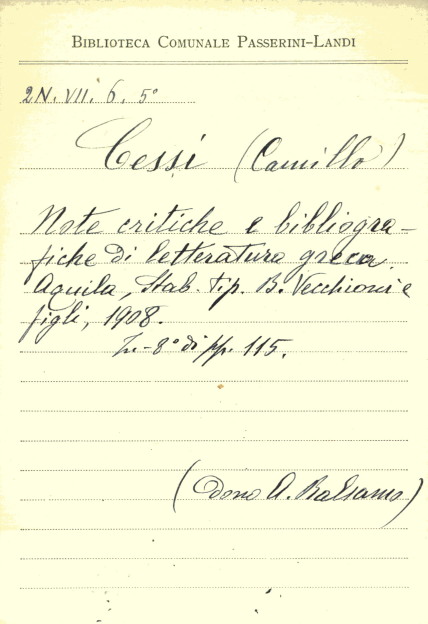 BIBLIOTECA COMUNALE PASSERINI-LANDI
2N. VII. 6. 5°
Cessi (Camillo)
Note critiche e bibliogra-
fiche di letteratura greca.
Aquila, Stab. tip. B. Vecchioni e
figli, 1908.
In-8° di pp. 115.
(dono A. Balsamo)